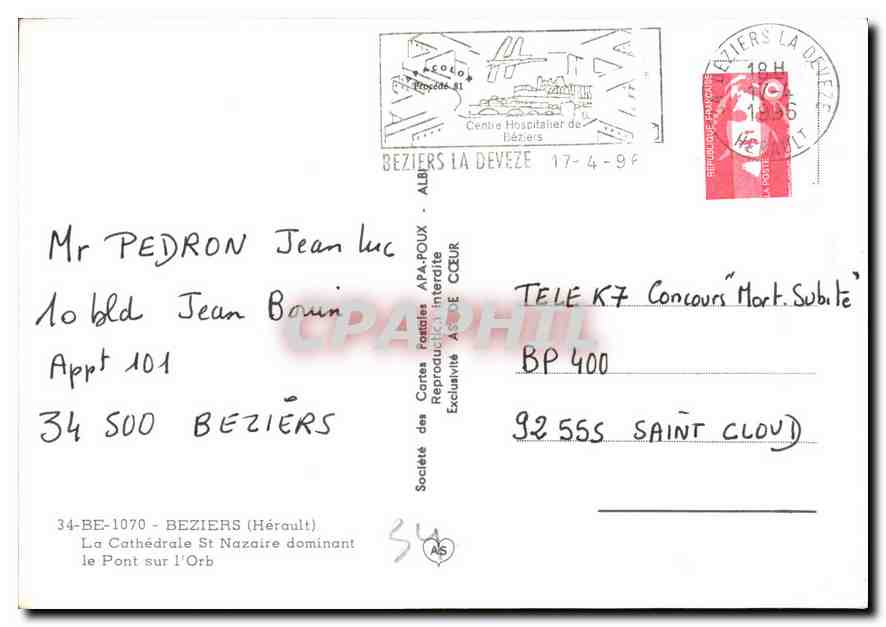 APACOLOR
Procédé 81
Centre Hospitalier de
Béziers
BEZIERS LA DEVEZE 17-4-96
BEZIERS LA DEVEZE
18H
17-4
1996
HERAULT
REPUBLIQUE FRANÇAISE
LA POSTE
Mr PEDRON Jean Luc
10 bld Jean Bouin
Appt 101
34 500 BEZIERS
Société des Cartes Postales APA-POUX - ALBI
Reproduction interdite
Exclusivité AS DE CŒUR
TELE K7 Concours "Mort. Subite"
BP 400
92 555 SAINT CLOUD
34-BE-1070 - BEZIERS (Hérault)
La Cathédrale St Nazaire dominant
le Pont sur l'Orb
34
AS
CPAPHIL